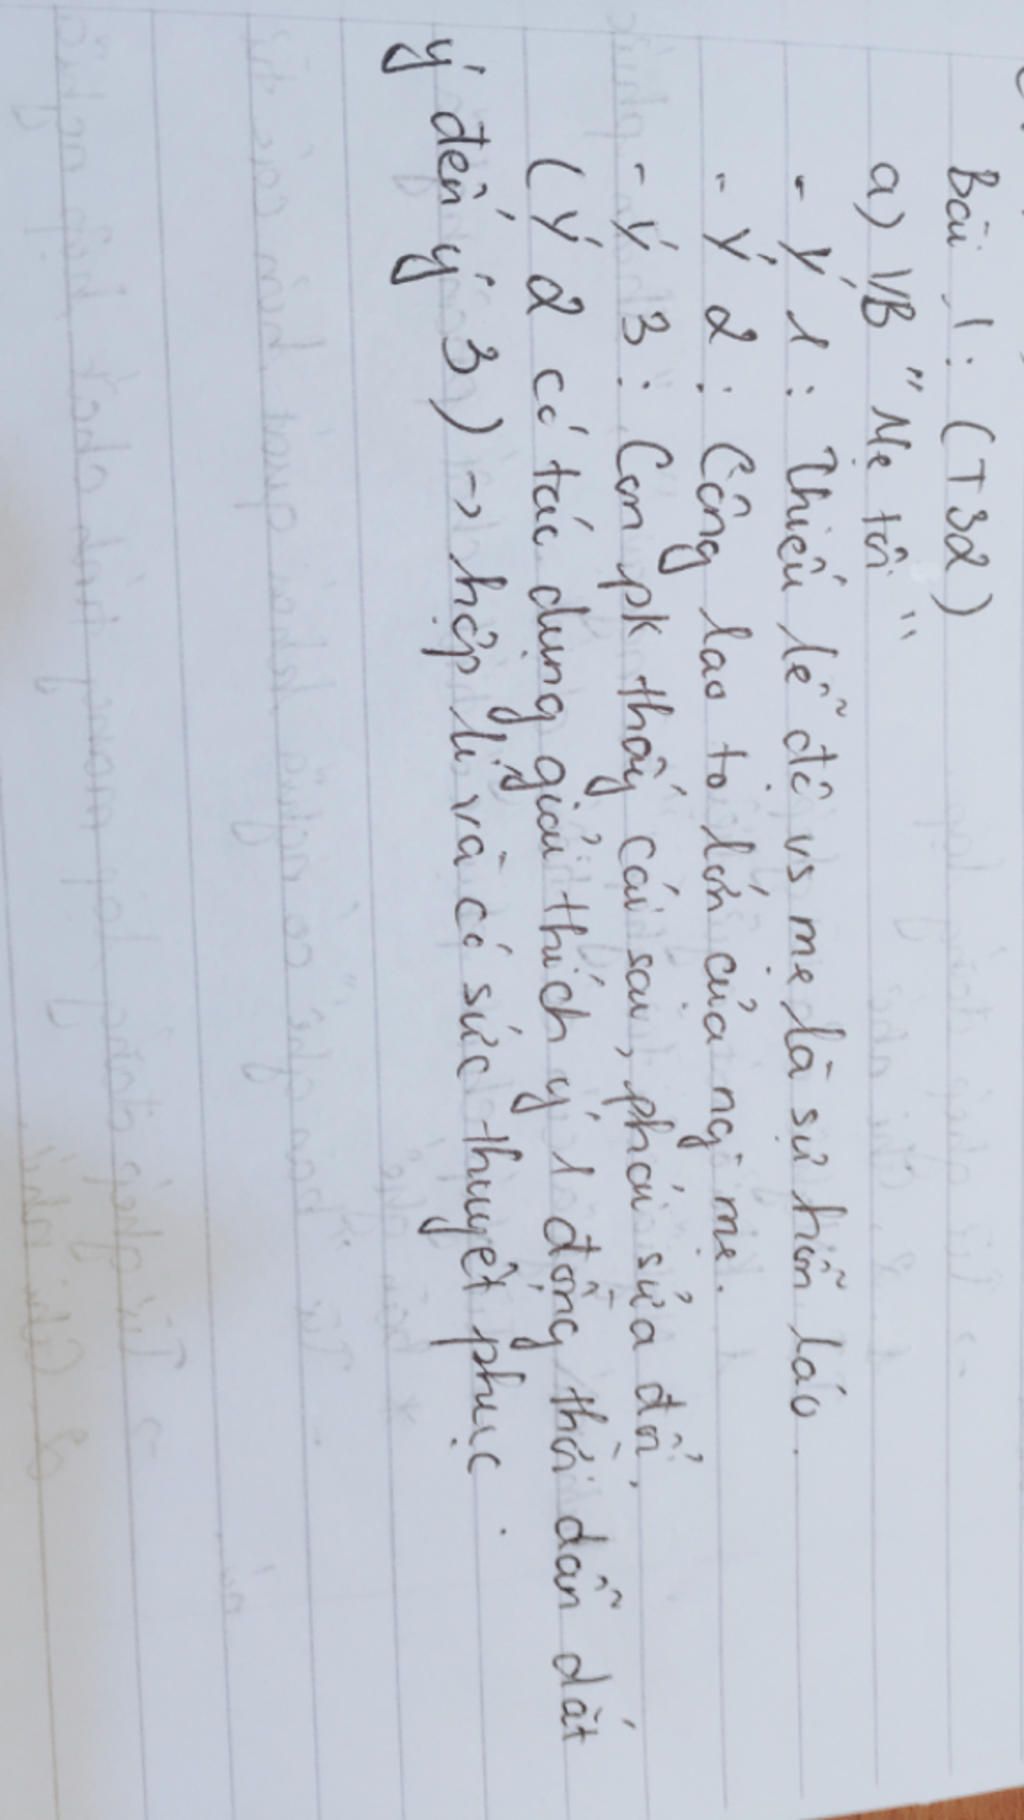 Bài 1 : (T32)
a) VB "Mẹ tôi"
- Ý 1 : Thiếu lễ độ vs mẹ là sự hỗn láo.
- Ý 2 : Công lao to lớn của ng mẹ.
- Ý 3 : Con pk thấy cái sai, phải sửa đổi.
(Ý 2 có tác dụng giải thích ý 1 đồng thời dẫn dắt
ý đến ý 3) -> hợp lí và có sức thuyết phục.